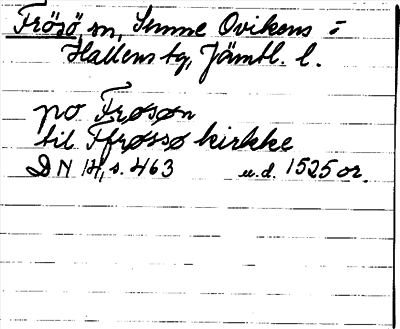 Frösö, sn, Sunne Ovikens o
Hallens tg, Jämtl. l.
po Frøsøn
til Ffrøssø kirkke
DN 14, s. 463 u.d. 1525 or.